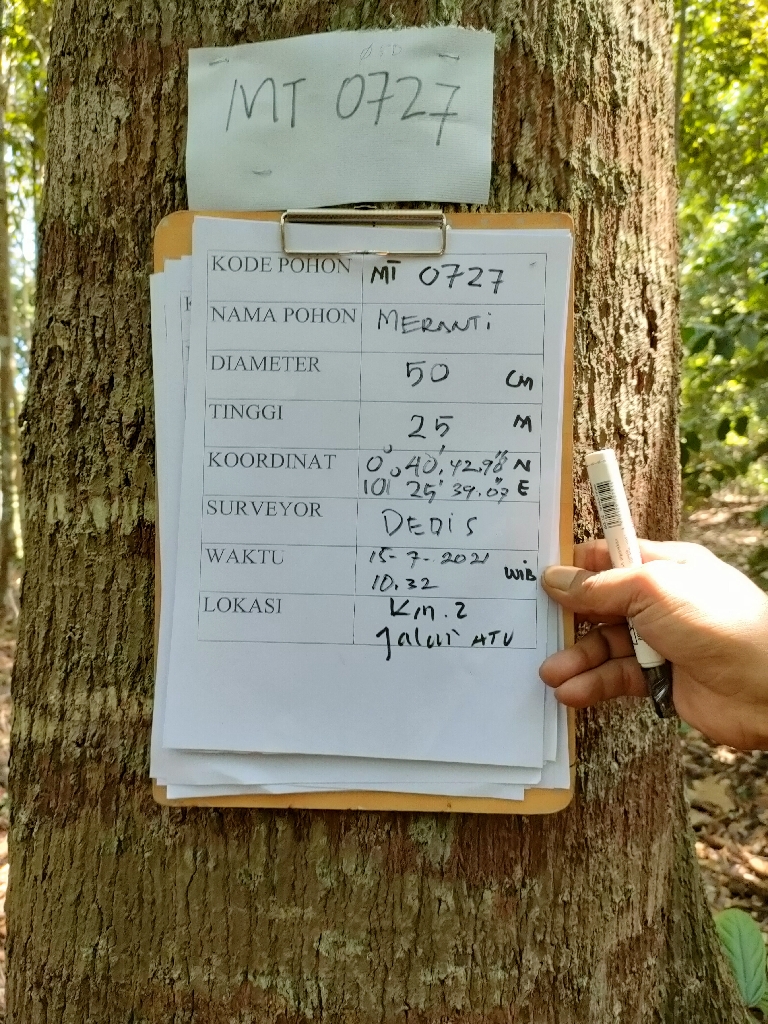 MT 0727
KODE POHON MT 0727
NAMA POHON MERANTI
DIAMETER 50 CM
TINGGI 25 M
KOORDINAT 0° 40' 42.98" N
101° 25' 39.07" E
SURVEYOR DEDIS
WAKTU 15-7-2021
10.32 WIB
LOKASI Km. 2
Jalur ATV